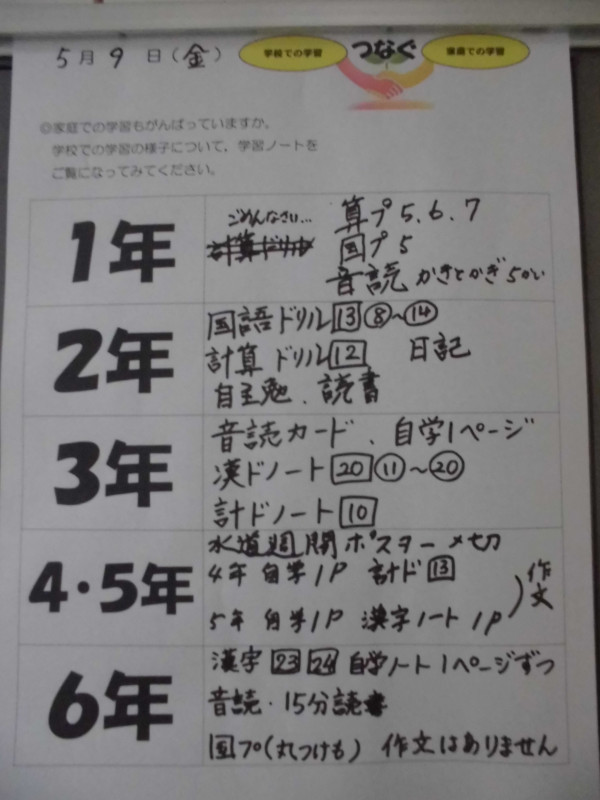 5月9日(金)
学校での学習 つなぐ 家庭での学習
◎家庭での学習もがんばっていますか。
学校での学習の様子について、学習ノートを
ご覧になってみてください。
1年
ごめんなさい… 算プ5.6.7
計算ドリル 国プ5
音読 かきとかぎ5かい
2年
国語ドリル13⑧~⑭
計算ドリル12 日記
自主勉.読書
3年
音読カード、自学1ページ
漢ドノート20⑪~⑳
計ドノート10
4・5年
水道週間ポスター〆切
4年 自学1P 計ド13
5年 自学1P 漢字ノート1P
)作文
6年
漢字23 24 自学ノート1ページずつ
音読・15分読書
国プ(丸つけも) 作文はありません